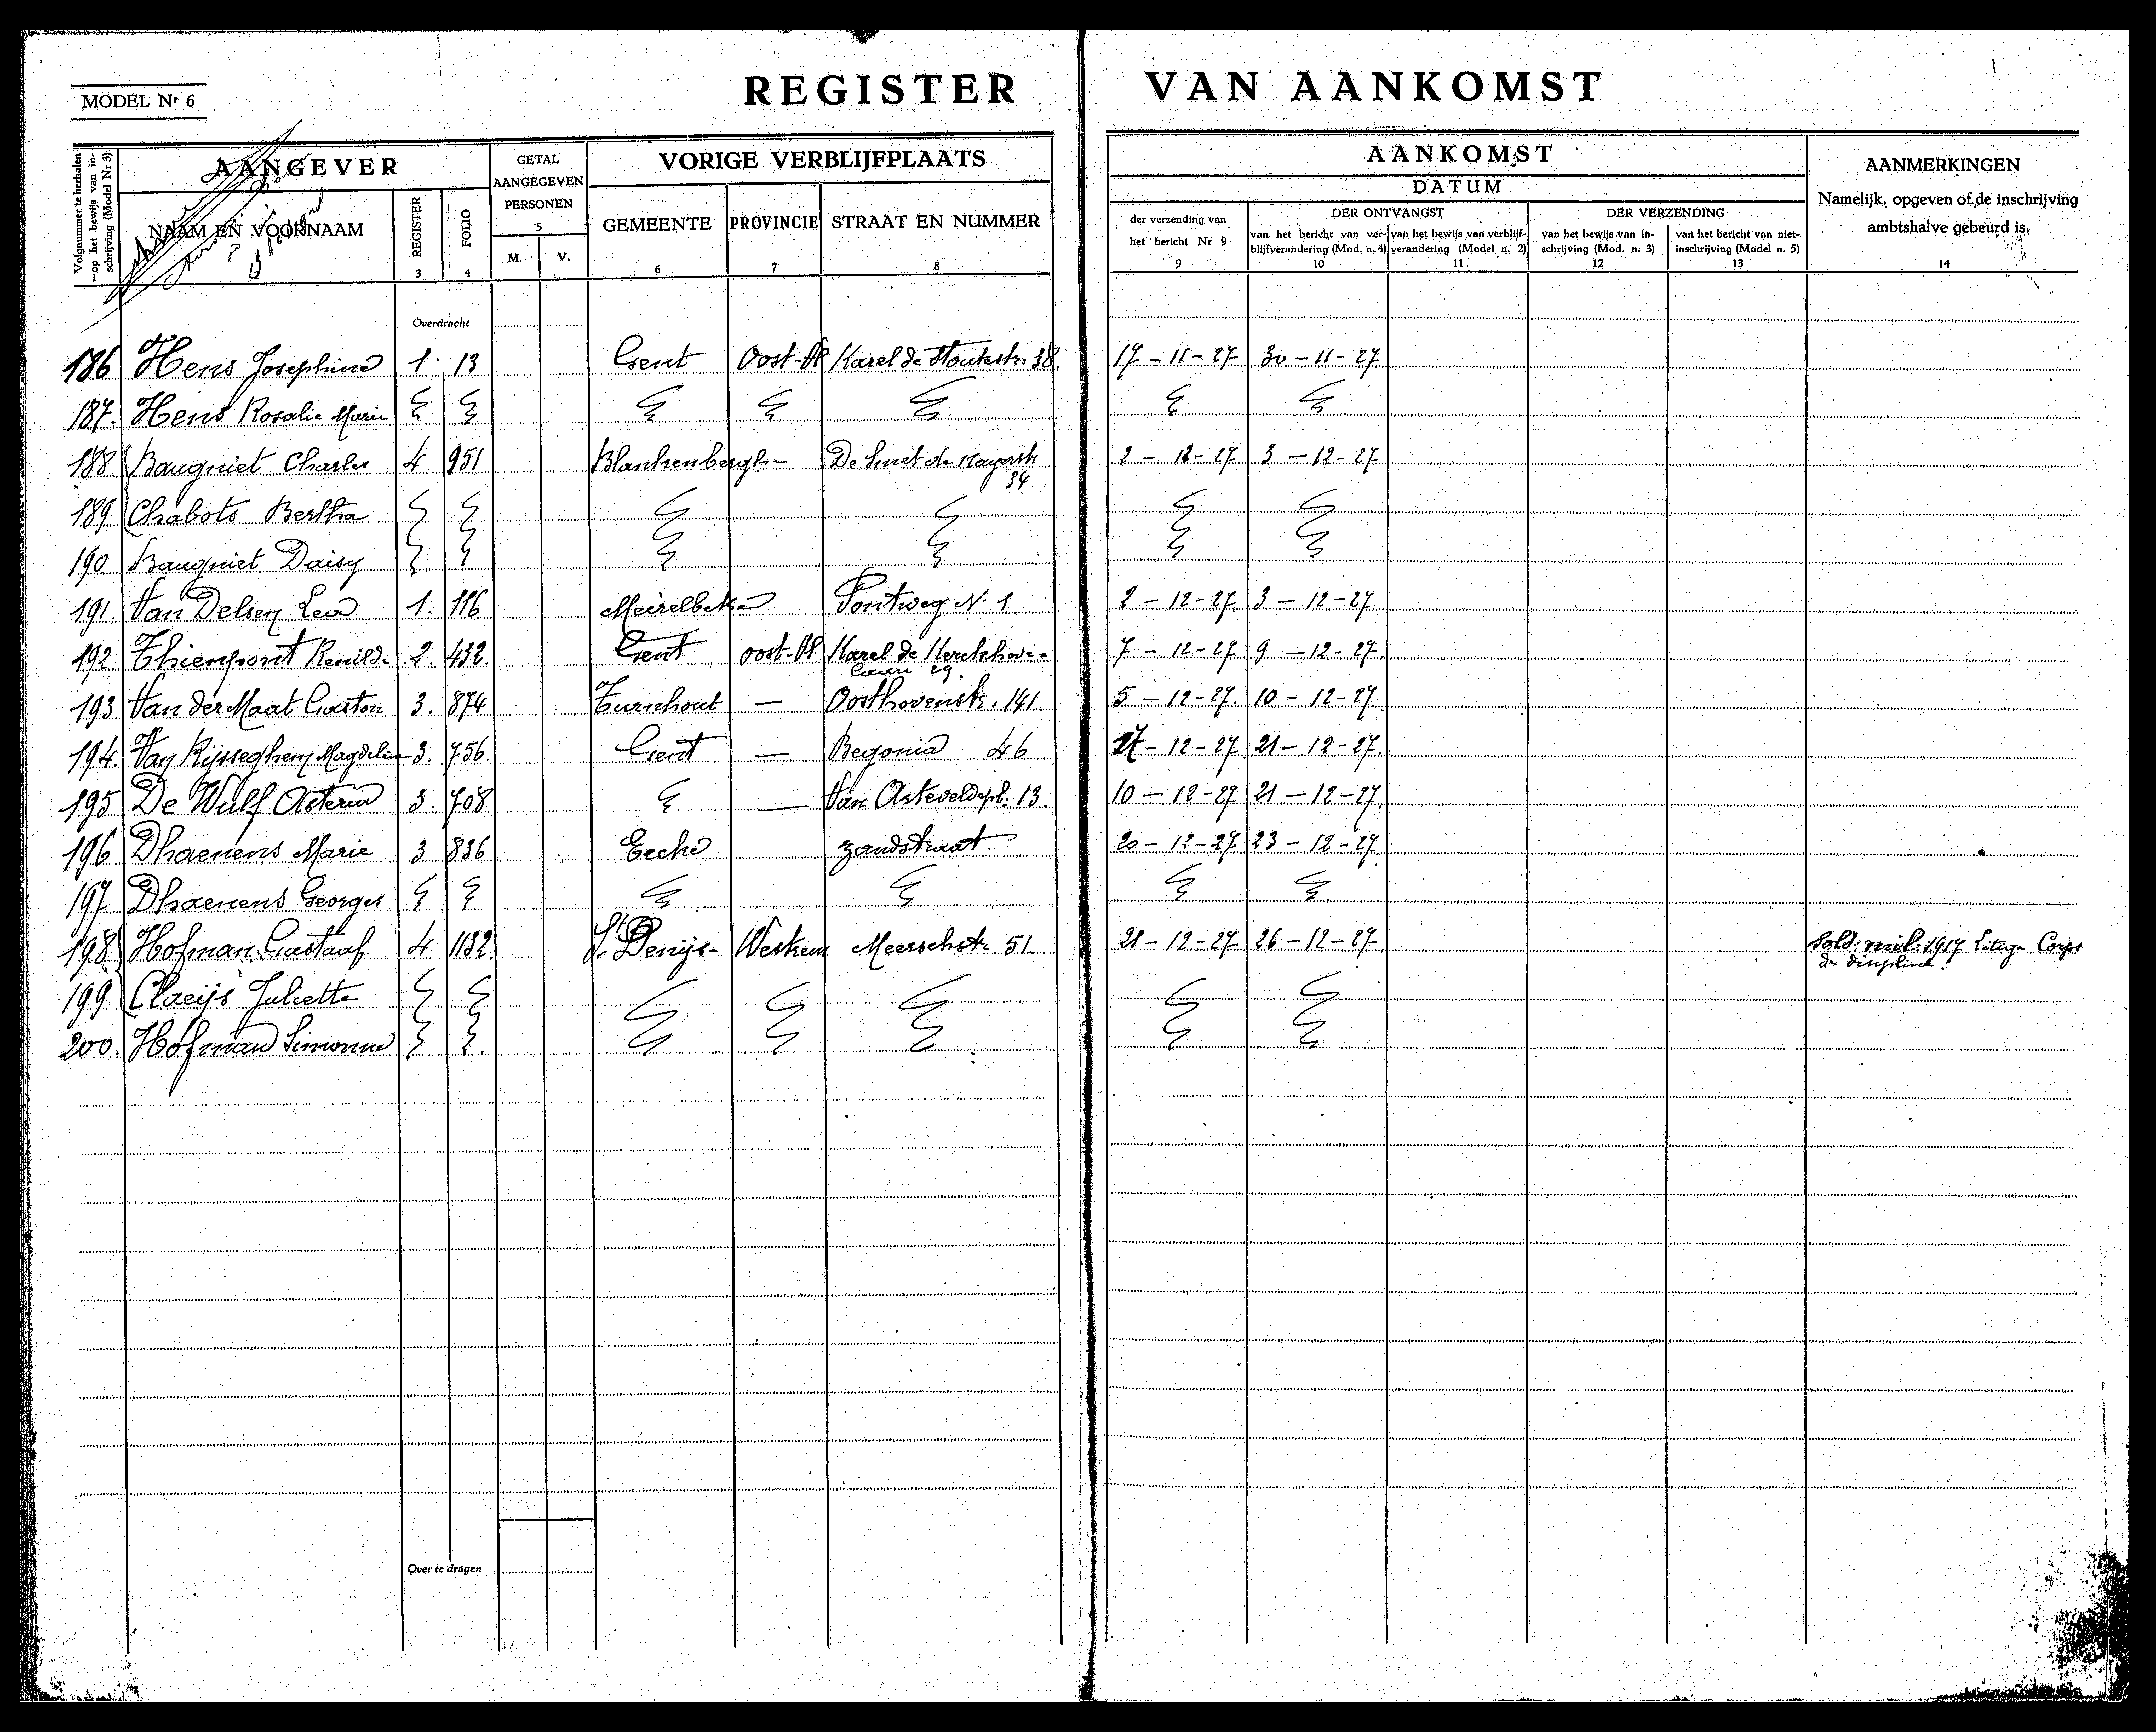 REGISTER VAN AANKOMST
MODEL Nr 6
Volgnummer te herhalen op het bewijs van inschrijving (Model Nr 3)
AANGEVER
NAAM EN VOORNAAM
REGISTER
3
FOLIO
4
GETAL
AANGEGEVEN
PERSONEN
5
M. V.
VORIGE VERBLIJFPLAATS
GEMEENTE
6
PROVINCIE
7
STRAAT EN NUMMER
8
AANKOMST
DATUM
der verzending van
het bericht Nr 9
9
DER ONTVANGST
van het bericht van ver-
blijfverandering (Mod. n. 4)
10
van het bewijs van verblijf-
verandering (Model n. 2)
11
DER VERZENDING
van het bewijs van in-
schrijving (Mod. n. 3)
12
van het bericht van niet-
inschrijving (Model n. 5)
13
AANMERKINGEN
Namelijk, opgeven of de inschrijving
ambtshalve gebeurd is.
14
Overdracht
186 Hens Josephine 1. 13 Gent Oost-Vl Karel de Stoutestr. 38. 17-11-27 30-11-27
187. Hens Rosalie Marie
188 Baugniet Charles 4 951 Blankenbergh- De Smet de Nayerstr 34 2-12-27 3-12-27
189 Chabots Bertha
190 Baugniet Daisy
191. Van Delsen Leo 1. 116 Meirelbeke Pontweg N. 1 2-12-27 3-12-27
192. Thienpont Renilde 2. 432. Gent oost-Vl Karel de Kerckhove-
laan 29. 7-12-27 9-12-27.
193 Van der Maat Gaston 3. 874 Turnhout — Oosthovenstr. 141 5-12-27. 10-12-27
194. Van Rijsseghem Magdelin 3. 756. Gent — Begonia 46 -12-27 21-12-27.
195 De Wulf 3. 708 — Van Arteveldepl. 13. 10-12-27 21-12-27.
196 Dhaenens Marie 3 836 Eecke zandstraat 20-12-27 23-12-27.
197 Dhaenens Georges
198 Hofman Gustaaf. 4 1132. St Denijs- Westrem Meerschstr 51. 21-12-27 26-12-27 Sold. mil. 1917 Corps
de discipline.
199 Claeijs Juliette
200. Hofman Simonne
Over te dragen